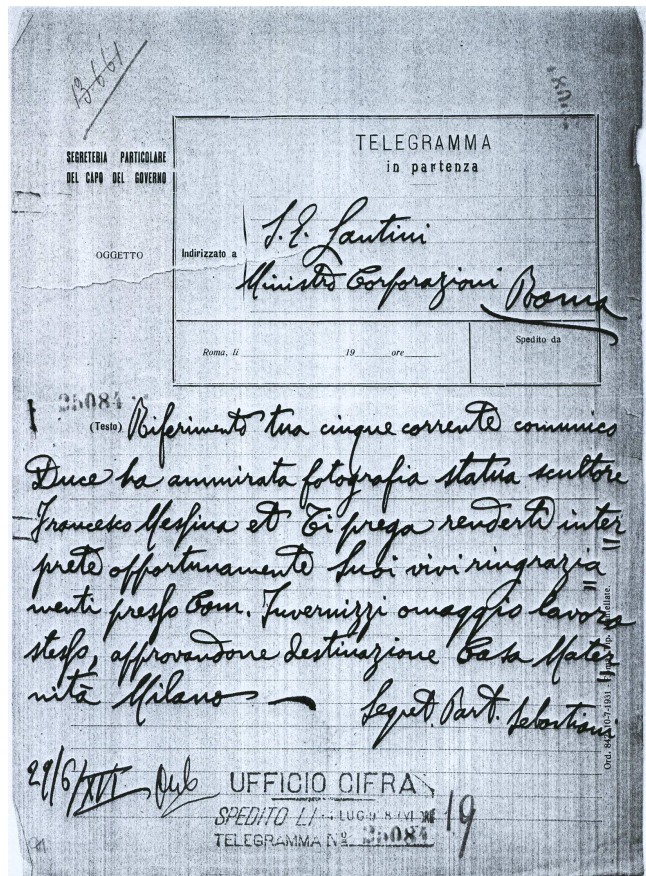 13661
TELEGRAMMA
in partenza
SEGRETERIA PARTICOLARE
DEL CAPO DEL GOVERNO
OGGETTO
Indirizzato a
S. E. Lantini
Ministro Corporazioni Roma
Roma, li 19 ore
Spedito da
25084
(Testo) Riferimento tua cinque corrente comunico
Duce ha ammirata fotografia statua scultore
Francesco Messina et Ti prega renderti inter=
prete opportunamente Suoi vivi ringrazia=
menti presso Com. Invernizzi omaggio lavoro
stesso, approvandone destinazione Casa Mater=
nità Milano —
Segret. Part. Sebastiani
29/6/XVI
UFFICIO CIFRA
SPEDITO LI LUG 9 8 XVI ORE 19
TELEGRAMMA Nº 25084
Ord. 842 10-7-1931